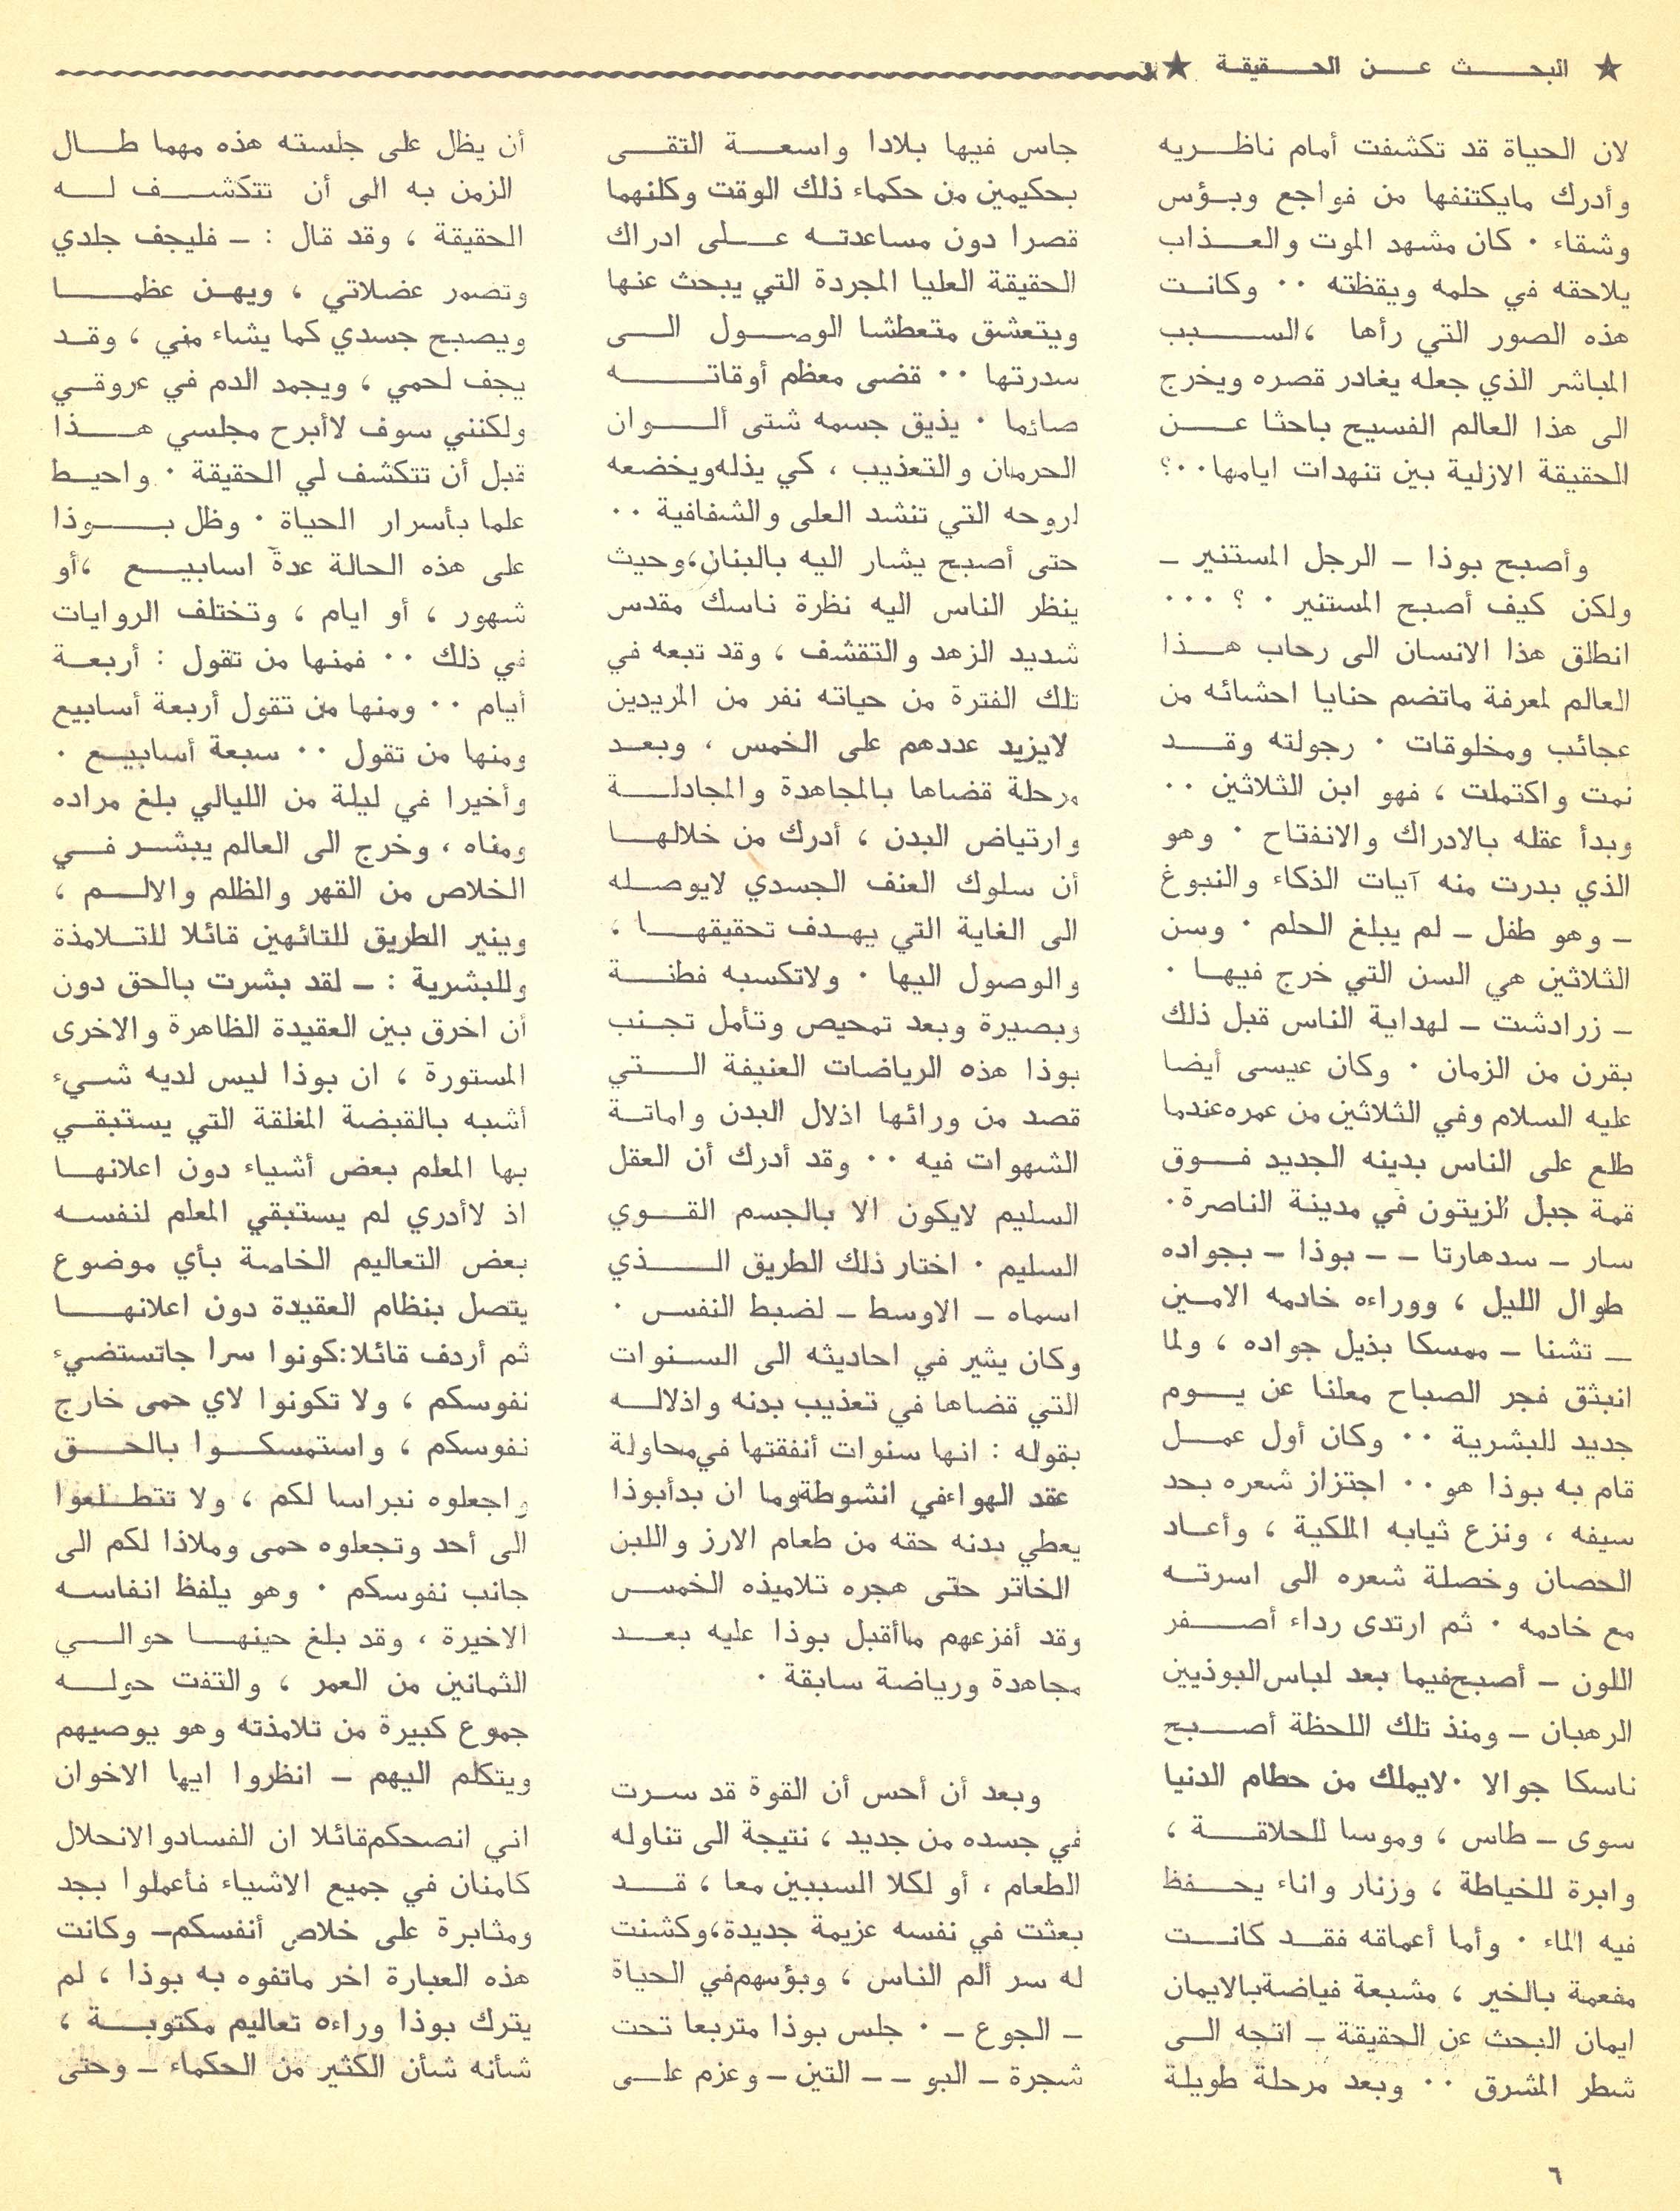 ★ البحث عن الحقيقة ★
لان الحياة قد تكشفت أمام ناظريه
وأدرك مايكتنفها من فواجع وبؤس
وشقاء · كان مشهد الموت والعذاب
يلاحقه في حلمه ويقظته ·· وكانت
هذه الصور التي رأها ، السبب
المباشر الذي جعله يغادر قصره ويخرج
الى هذا العالم الفسيح باحثا عن
الحقيقة الازلية بين تنهدات ايامها··؟
وأصبح بوذا – الرجل المستنير –
ولكن كيف أصبح المستنير · ؟ ···
انطلق هذا الانسان الى رحاب هذا
العالم لمعرفة ماتضم حنايا احشائه من
عجائب ومخلوقات · رجولته وقد
نمت واكتملت ، فهو ابن الثلاثين ··
وبدأ عقله بالادراك والانفتاح · وهو
الذي بدرت منه آيات الذكاء والنبوغ
– وهو طفل – لم يبلغ الحلم · وسن
الثلاثين هي السن التي خرج فيها ·
– زرادشت – لهداية الناس قبل ذلك
بقرن من الزمان · وكان عيسى أيضا
عليه السلام وفي الثلاثين من عمره عندما
طلع على الناس بدينه الجديد فوق
قمة جبل الزيتون في مدينة الناصرة·
سار – سدهارتا – – بوذا – بجواده
طوال الليل ، ووراءه خادمه الامين
– تشنا – ممسكا بذيل جواده ، ولما
انبثق فجر الصباح معلنا عن يوم
جديد للبشرية ·· وكان أول عمل
قام به بوذا هو·· اجتزاز شعره بحد
سيفه ، ونزع ثيابه الملكية ، وأعاد
الحصان وخصلة شعره الى اسرته
مع خادمه · ثم ارتدى رداء أصفر
اللون – أصبح فيما بعد لباس البوذيين
الرهبان – ومنذ تلك اللحظة أصبح
ناسكا جوالا · لايملك من حطام الدنيا
سوى – طاس ، وموسا للحلاقة ،
وابرة للخياطة ، وزنار واناء يحفظ
فيه الماء · وأما أعماقه فقد كانت
مفعمة بالخير ، مشبعة فياضة بالايمان
ايمان البحث عن الحقيقة – اتجه الى
شطر المشرق ·· وبعد مرحلة طويلة
جاس فيها بلادا واسعة التقى
بحكيمين من حكماء ذلك الوقت وكلنهما
قصرا دون مساعدته على ادراك
الحقيقة العليا المجردة التي يبحث عنها
ويتعشق متعطشا الوصول الى
سدرتها ·· قضى معظم أوقاته
صائما · يذيق جسمه شتى ألوان
الحرمان والتعذيب ، كي يذله ويخضعه
لروحه التي تنشد العلى والشفافية ··
حتى أصبح يشار اليه بالبنان،وحيث
ينظر الناس اليه نظرة ناسك مقدس
شديد الزهد والتقشف ، وقد تبعه في
تلك الفترة من حياته نفر من المريدين
لايزيد عددهم على الخمس ، وبعد
مرحلة قضاها بالمجاهدة والمجادلة
وارتياض البدن ، أدرك من خلالها
أن سلوك العنف الجسدي لايوصله
الى الغاية التي يهدف تحقيقها ،
والوصول اليها · ولاتكسبه فطنة
وبصيرة وبعد تمحيص وتأمل تجنب
بوذا هذه الرياضات العنيفة التي
قصد من ورائها اذلال البدن واماتة
الشهوات فيه ·· وقد أدرك أن العقل
السليم لايكون الا بالجسم القوي
السليم · اختار ذلك الطريق الذي
اسماه – الاوسط – لضبط النفس ·
وكان يشير في احاديثه الى السنوات
التي قضاها في تعذيب بدنه واذلاله
بقوله : انها سنوات أنفقتها في محاولة
عقد الهواء في انشوطة وما ان بدأ بوذا
يعطي بدنه حقه من طعام الارز واللبن
الخاثر حتى هجره تلاميذه الخمس
وقد أفزعهم ماأقبل بوذا عليه بعد
مجاهدة ورياضة سابقة ·
وبعد أن أحس أن القوة قد سرت
في جسده من جديد ، نتيجة الى تناوله
الطعام ، أو لكلا السببين معا ، قد
بعثت في نفسه عزيمة جديدة،وكشنت
له سر ألم الناس ، وبؤسهم في الحياة
– الجوع – · جلس بوذا متربعا تحت
شجرة – البو – – التين – وعزم على
أن يظل على جلسته هذه مهما طال
الزمن به الى أن تتكشف له
الحقيقة ، وقد قال : – فليجف جلدي
وتضمر عضلاتي ، ويهن عظما
ويصبح جسدي كما يشاء مني ، وقد
يجف لحمي ، ويجمد الدم في عروقي
ولكنني سوف لاأبرح مجلسي هذا
قبل أن تتكشف لي الحقيقة · واحيط
علما بأسرار الحياة · وظل بوذا
على هذه الحالة عدة اسابيع ،أو
شهور ، أو ايام ، وتختلف الروايات
في ذلك ·· فمنها من تقول : أربعة
أيام ·· ومنها من تقول أربعة أسابيع
ومنها من تقول ·· سبعة أسابيع ·
وأخيرا في ليلة من الليالي بلغ مراده
ومناه ، وخرج الى العالم يبشر في
الخلاص من القهر والظلم والالم ،
وينير الطريق للتائهين قائلا للتلامذة
وللبشرية : – لقد بشرت بالحق دون
أن اخرق بين العقيدة الظاهرة والاخرى
المستورة ، ان بوذا ليس لديه شيء
أشبه بالقبضة المغلقة التي يستبقي
بها المعلم بعض أشياء دون اعلانها
اذ لاأدري لم يستبقي المعلم لنفسه
بعض التعاليم الخاصة بأي موضوع
يتصل بنظام العقيدة دون اعلانها
ثم أردف قائلا:كونوا سرا جاتستضيء
نفوسكم ، ولا تكونوا لاي حمى خارج
نفوسكم ، واستمسكوا بالحق
واجعلوه نبراسا لكم ، ولا تتطلعوا
الى أحد وتجعلوه حمى وملاذا لكم الى
جانب نفوسكم · وهو يلفظ انفاسه
الاخيرة ، وقد بلغ حينها حوالي
الثمانين من العمر ، والتفت حوله
جموع كبيرة من تلامذته وهو يوصيهم
ويتكلم اليهم – انظروا ايها الاخوان
اني انصحكم قائلا ان الفساد والانحلال
كامنان في جميع الاشياء فأعملوا بجد
ومثابرة على خلاص أنفسكم– وكانت
هذه العبارة اخر ماتفوه به بوذا ، لم
يترك بوذا وراءه تعاليم مكتوبة ،
شأنه شأن الكثير من الحكماء – وحتى
٦